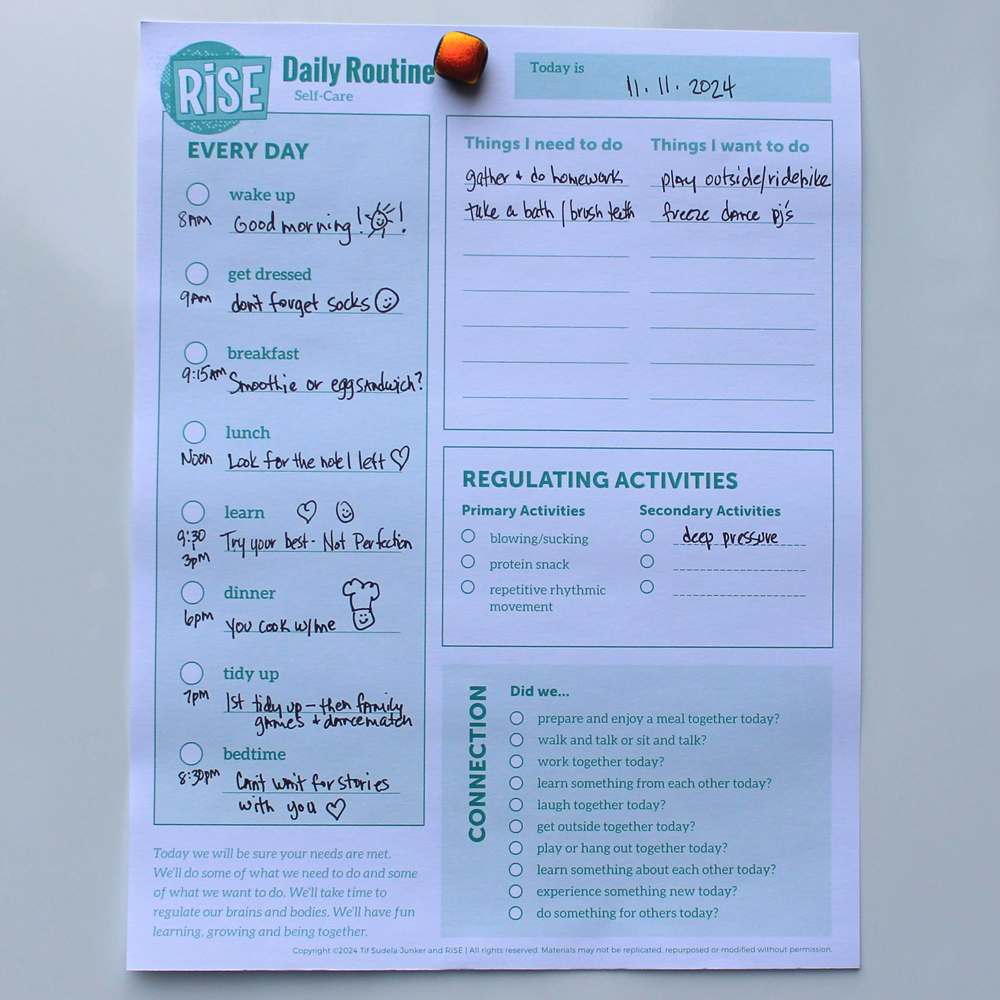 RiSE
Daily Routine
Self-Care
Today is
11. 11. 2024
EVERY DAY
wake up
8AM Good morning! !
get dressed
9AM don't forget socks
breakfast
9:15AM Smoothie or egg sandwich?
lunch
Noon Look for the note I left
learn
9:30 Try your best - Not Perfection
3pm
dinner
6pm you cook w/me
tidy up
7pm 1st tidy up - then family
games + dance match
bedtime
8:30pm Can't wait for stories
with you
Today we will be sure your needs are met.
We'll do some of what we need to do and some
of what we want to do. We'll take time to
regulate our brains and bodies. We'll have fun
learning, growing and being together.
Things I need to do
gather + do homework
take a bath / brush teeth
Things I want to do
play outside/ride bike
freeze dance pj's
REGULATING ACTIVITIES
Primary Activities
blowing/sucking
protein snack
repetitive rhythmic
movement
Secondary Activities
deep pressure
CONNECTION
Did we...
prepare and enjoy a meal together today?
walk and talk or sit and talk?
work together today?
learn something from each other today?
laugh together today?
get outside together today?
play or hang out together today?
learn something about each other today?
experience something new today?
do something for others today?
Copyright ©2024 Tif Sudela Junker and RISE | All rights reserved. Materials may not be replicated, repurposed or modified without permission.